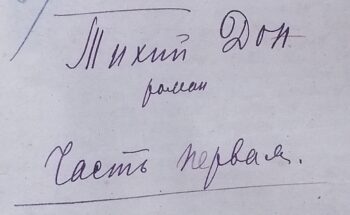 Тихий Дон
роман
Часть первая.